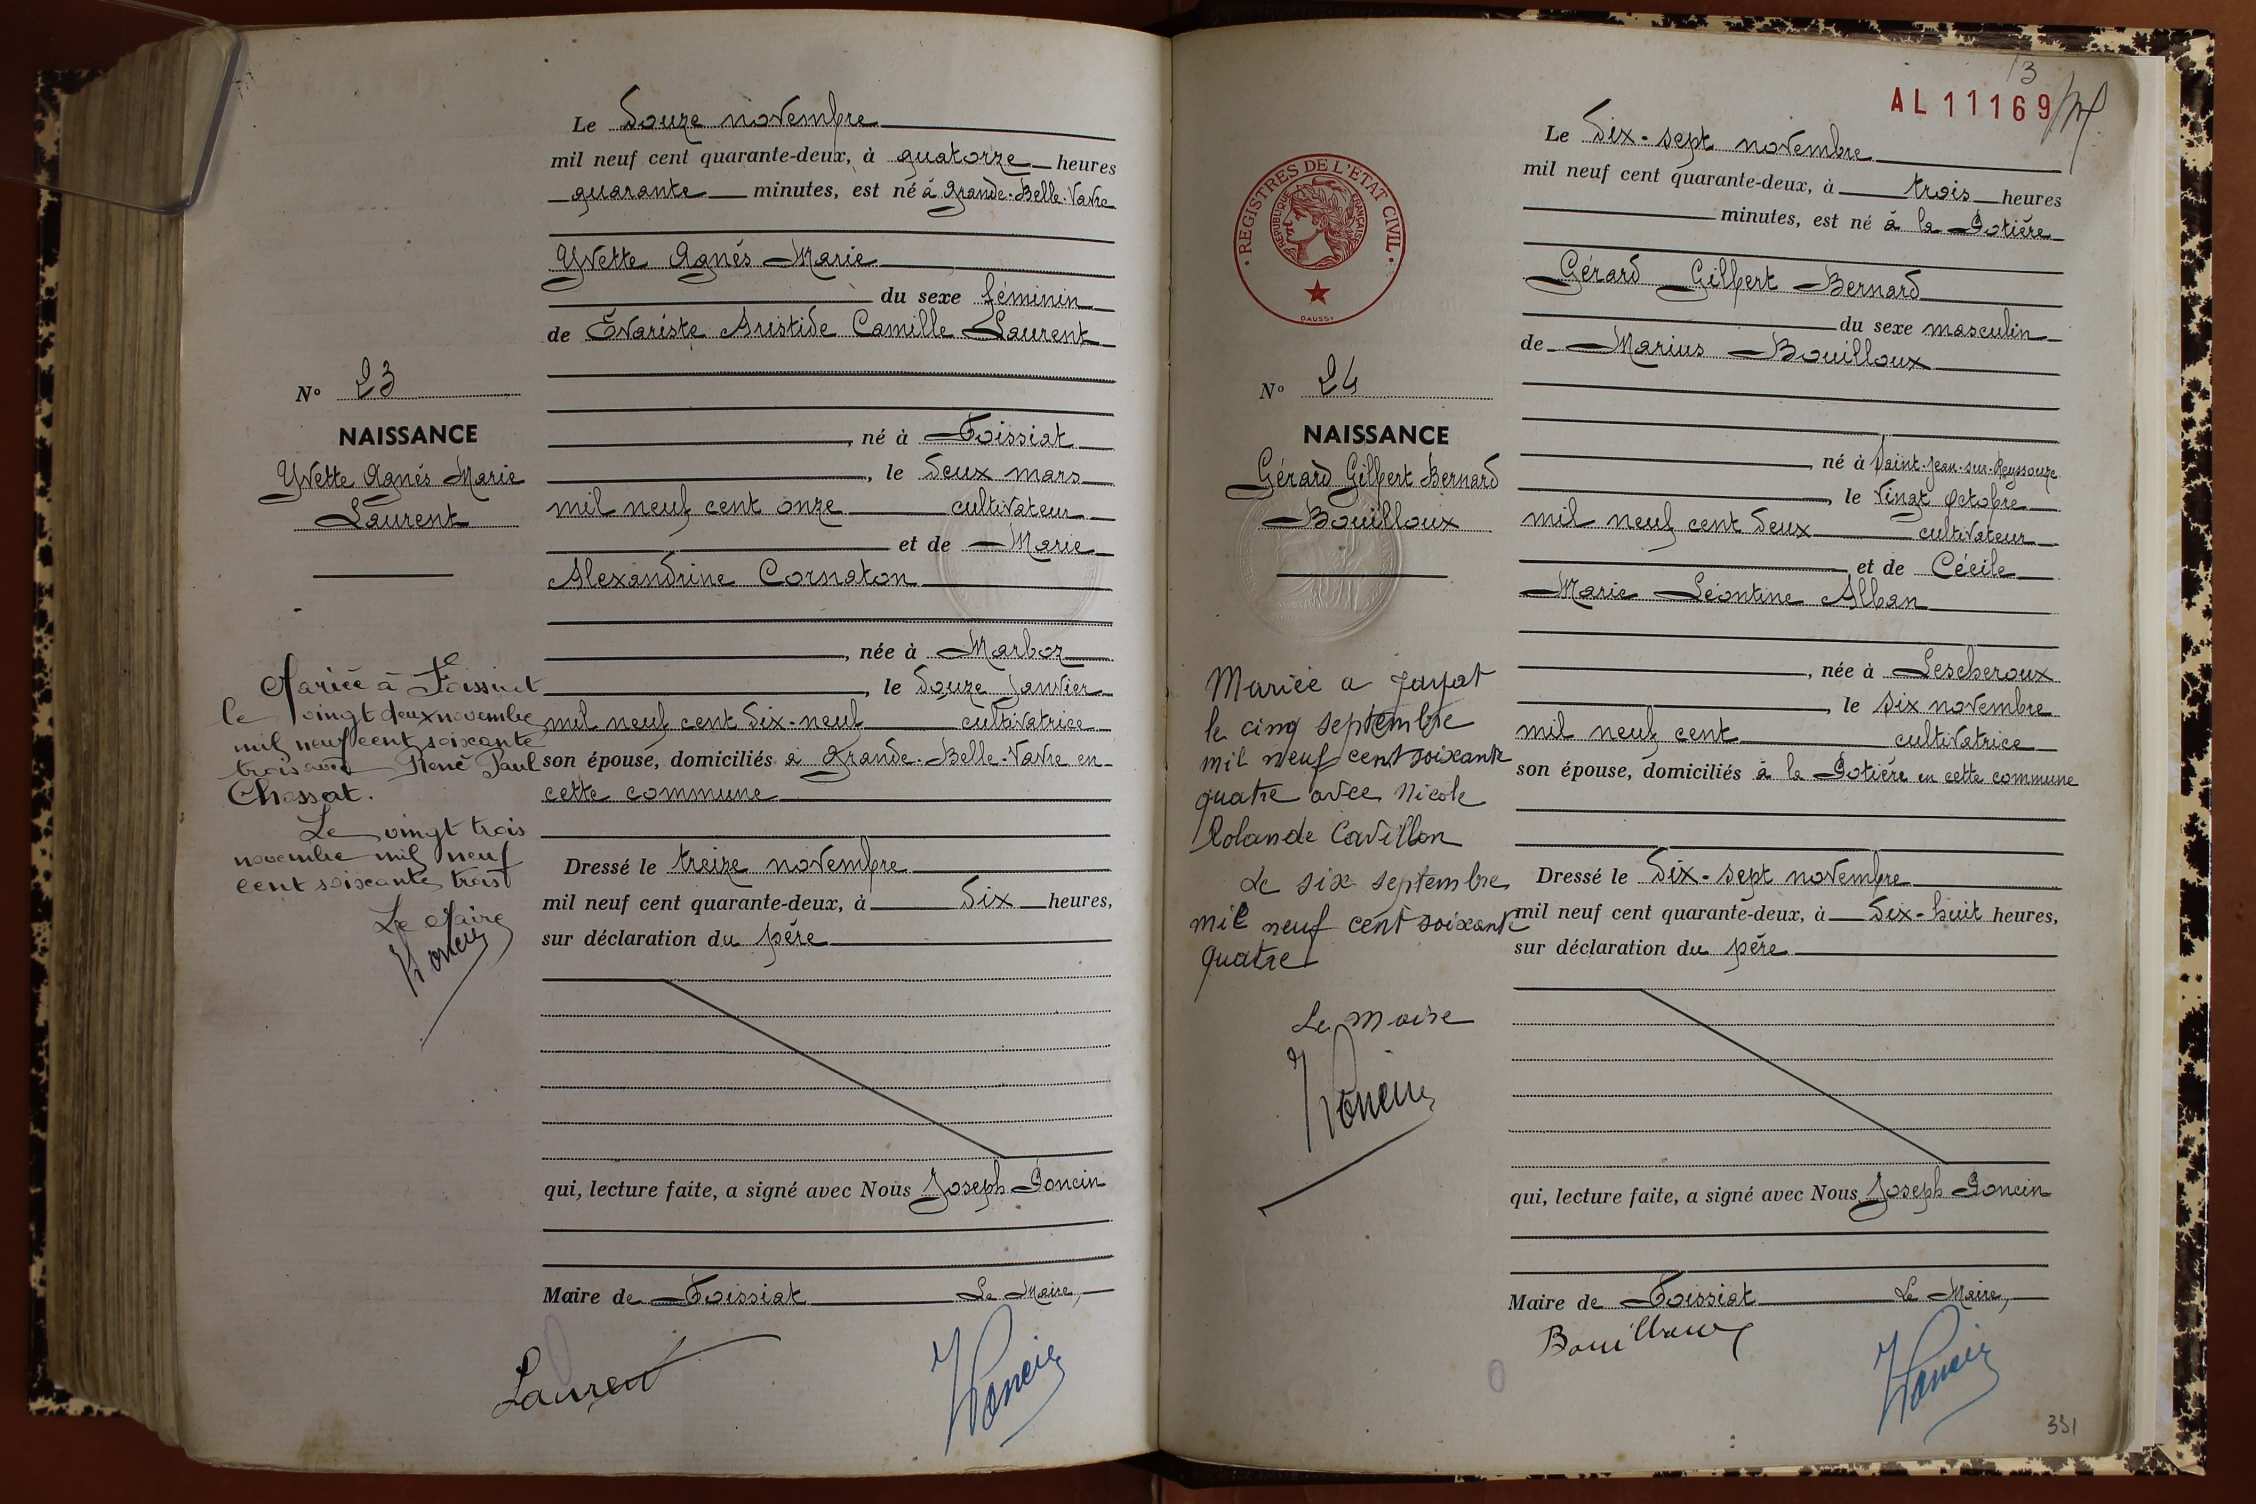 Le douze novembre
mil neuf cent quarante-deux, à quatorze heures
quarante minutes, est né à Grande-Belle-Vavre
Yvette Agnès Marie
du sexe féminin
de Evariste Aristide Camille Laurent
N° 23
NAISSANCE
Yvette Agnès Marie
Laurent
, né à Foissiat
, le deux mars
mil neuf cent onze cultivateur
et de Marie
Alexandrine Cornaton
, née à Marboz
, le douze janvier
mil neuf cent dix-neuf cultivatrice
son épouse, domiciliés à Grande-Belle-Vavre en
cette commune
Mariée à Foissiat
le vingt deux novembre
mil neuf cent soixante
trois avec René Paul
Chossat.
Le vingt trois
novembre mil neuf
cent soixante trois
Le Maire
Poncin
Dressé le treize novembre
mil neuf cent quarante-deux, à dix heures,
sur déclaration du père
qui, lecture faite, a signé avec Nous Joseph Poncin
Maire de Foissiat Le Maire,
Laurent
Poncin
13
AL 11169
Le dix-sept novembre
mil neuf cent quarante-deux, à trois heures
minutes, est né à la Potière
Gérard Gilbert Bernard
du sexe masculin
de Marius Bouilloux
REGISTRES DE L'ÉTAT CIVIL
RÉPUBLIQUE FRANÇAISE
DAUSSY
N° 24
NAISSANCE
Gérard Gilbert Bernard
Bouilloux
né à Saint-Jean-sur-Reyssouze
, le vingt octobre
mil neuf cent deux cultivateur
et de Cécile
Marie Léontine Alban
, née à Lescheroux
, le dix novembre
mil neuf cent cultivatrice
son épouse, domiciliés à la Potière en cette commune
Mariée a Jayat
le cinq septembre
mil neuf cent soixante
quatre avec Nicole
Rolande Cavillon
Le six septembre
mil neuf cent soixante
quatre
Le maire
Poncin
Dressé le dix-sept novembre
mil neuf cent quarante-deux, à dix-huit heures,
sur déclaration du père
qui, lecture faite, a signé avec Nous Joseph Poncin
Maire de Foissiat Le Maire,
Bouilloux
Poncin
331